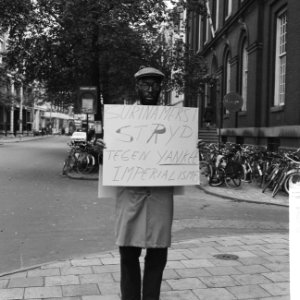 SURINAMERS!
STRYD
TEGEN YANKEE
IMPERIALISME